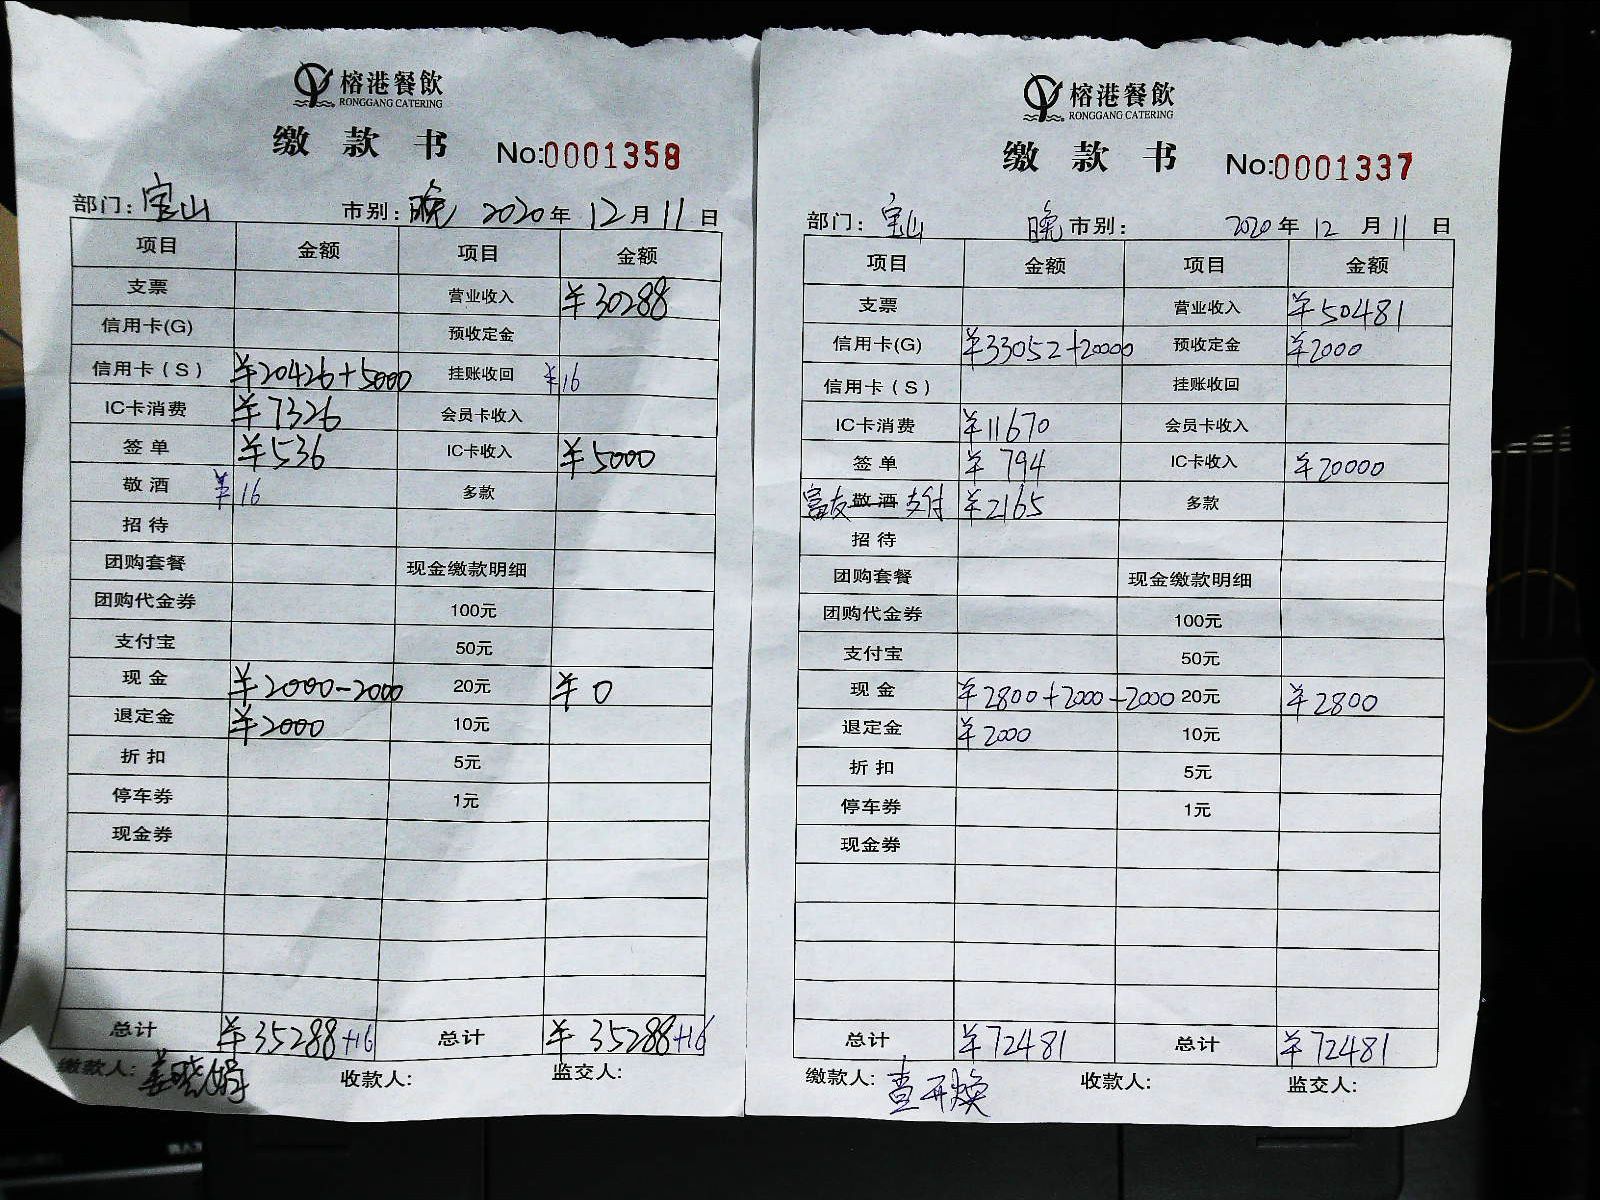 榕港餐飲
RONGGANG CATERING
缴款书 No:0001358
部门:宝山 市别:晚 2020年12月11日
项目 金额 项目 金额
支票 营业收入 ¥30288
信用卡(G) 预收定金
信用卡(S) ¥20426+5000 挂账收回 ¥16
IC卡消费 ¥7326 会员卡收入
签单 ¥536 IC卡收入 ¥5000
敬酒 ¥16 多款
招待
团购套餐 现金缴款明细
团购代金券 100元
支付宝 50元
现金 ¥2000-2000 20元 ¥0
退定金 ¥2000 10元
折扣 5元
停车券 1元
现金券
总计 ¥35288+16 总计 ¥35288+16
缴款人: 收款人: 监交人:
榕港餐飲
RONGGANG CATERING
缴款书 No:0001337
部门:宝山 晚市别: 2020年12月11日
项目 金额 项目 金额
支票 营业收入 ¥50481
信用卡(G) ¥33052+20000 预收定金 ¥2000
信用卡(S) 挂账收回
IC卡消费 ¥11670 会员卡收入
签单 ¥794 IC卡收入 ¥20000
富友敬酒支付 ¥2165 多款
招待
团购套餐 现金缴款明细
团购代金券 100元
支付宝 50元
现金 ¥2800+2000-2000 20元 ¥2800
退定金 ¥2000 10元
折扣 5元
停车券 1元
现金券
总计 ¥72481 总计 ¥72481
缴款人: 收款人: 监交人: